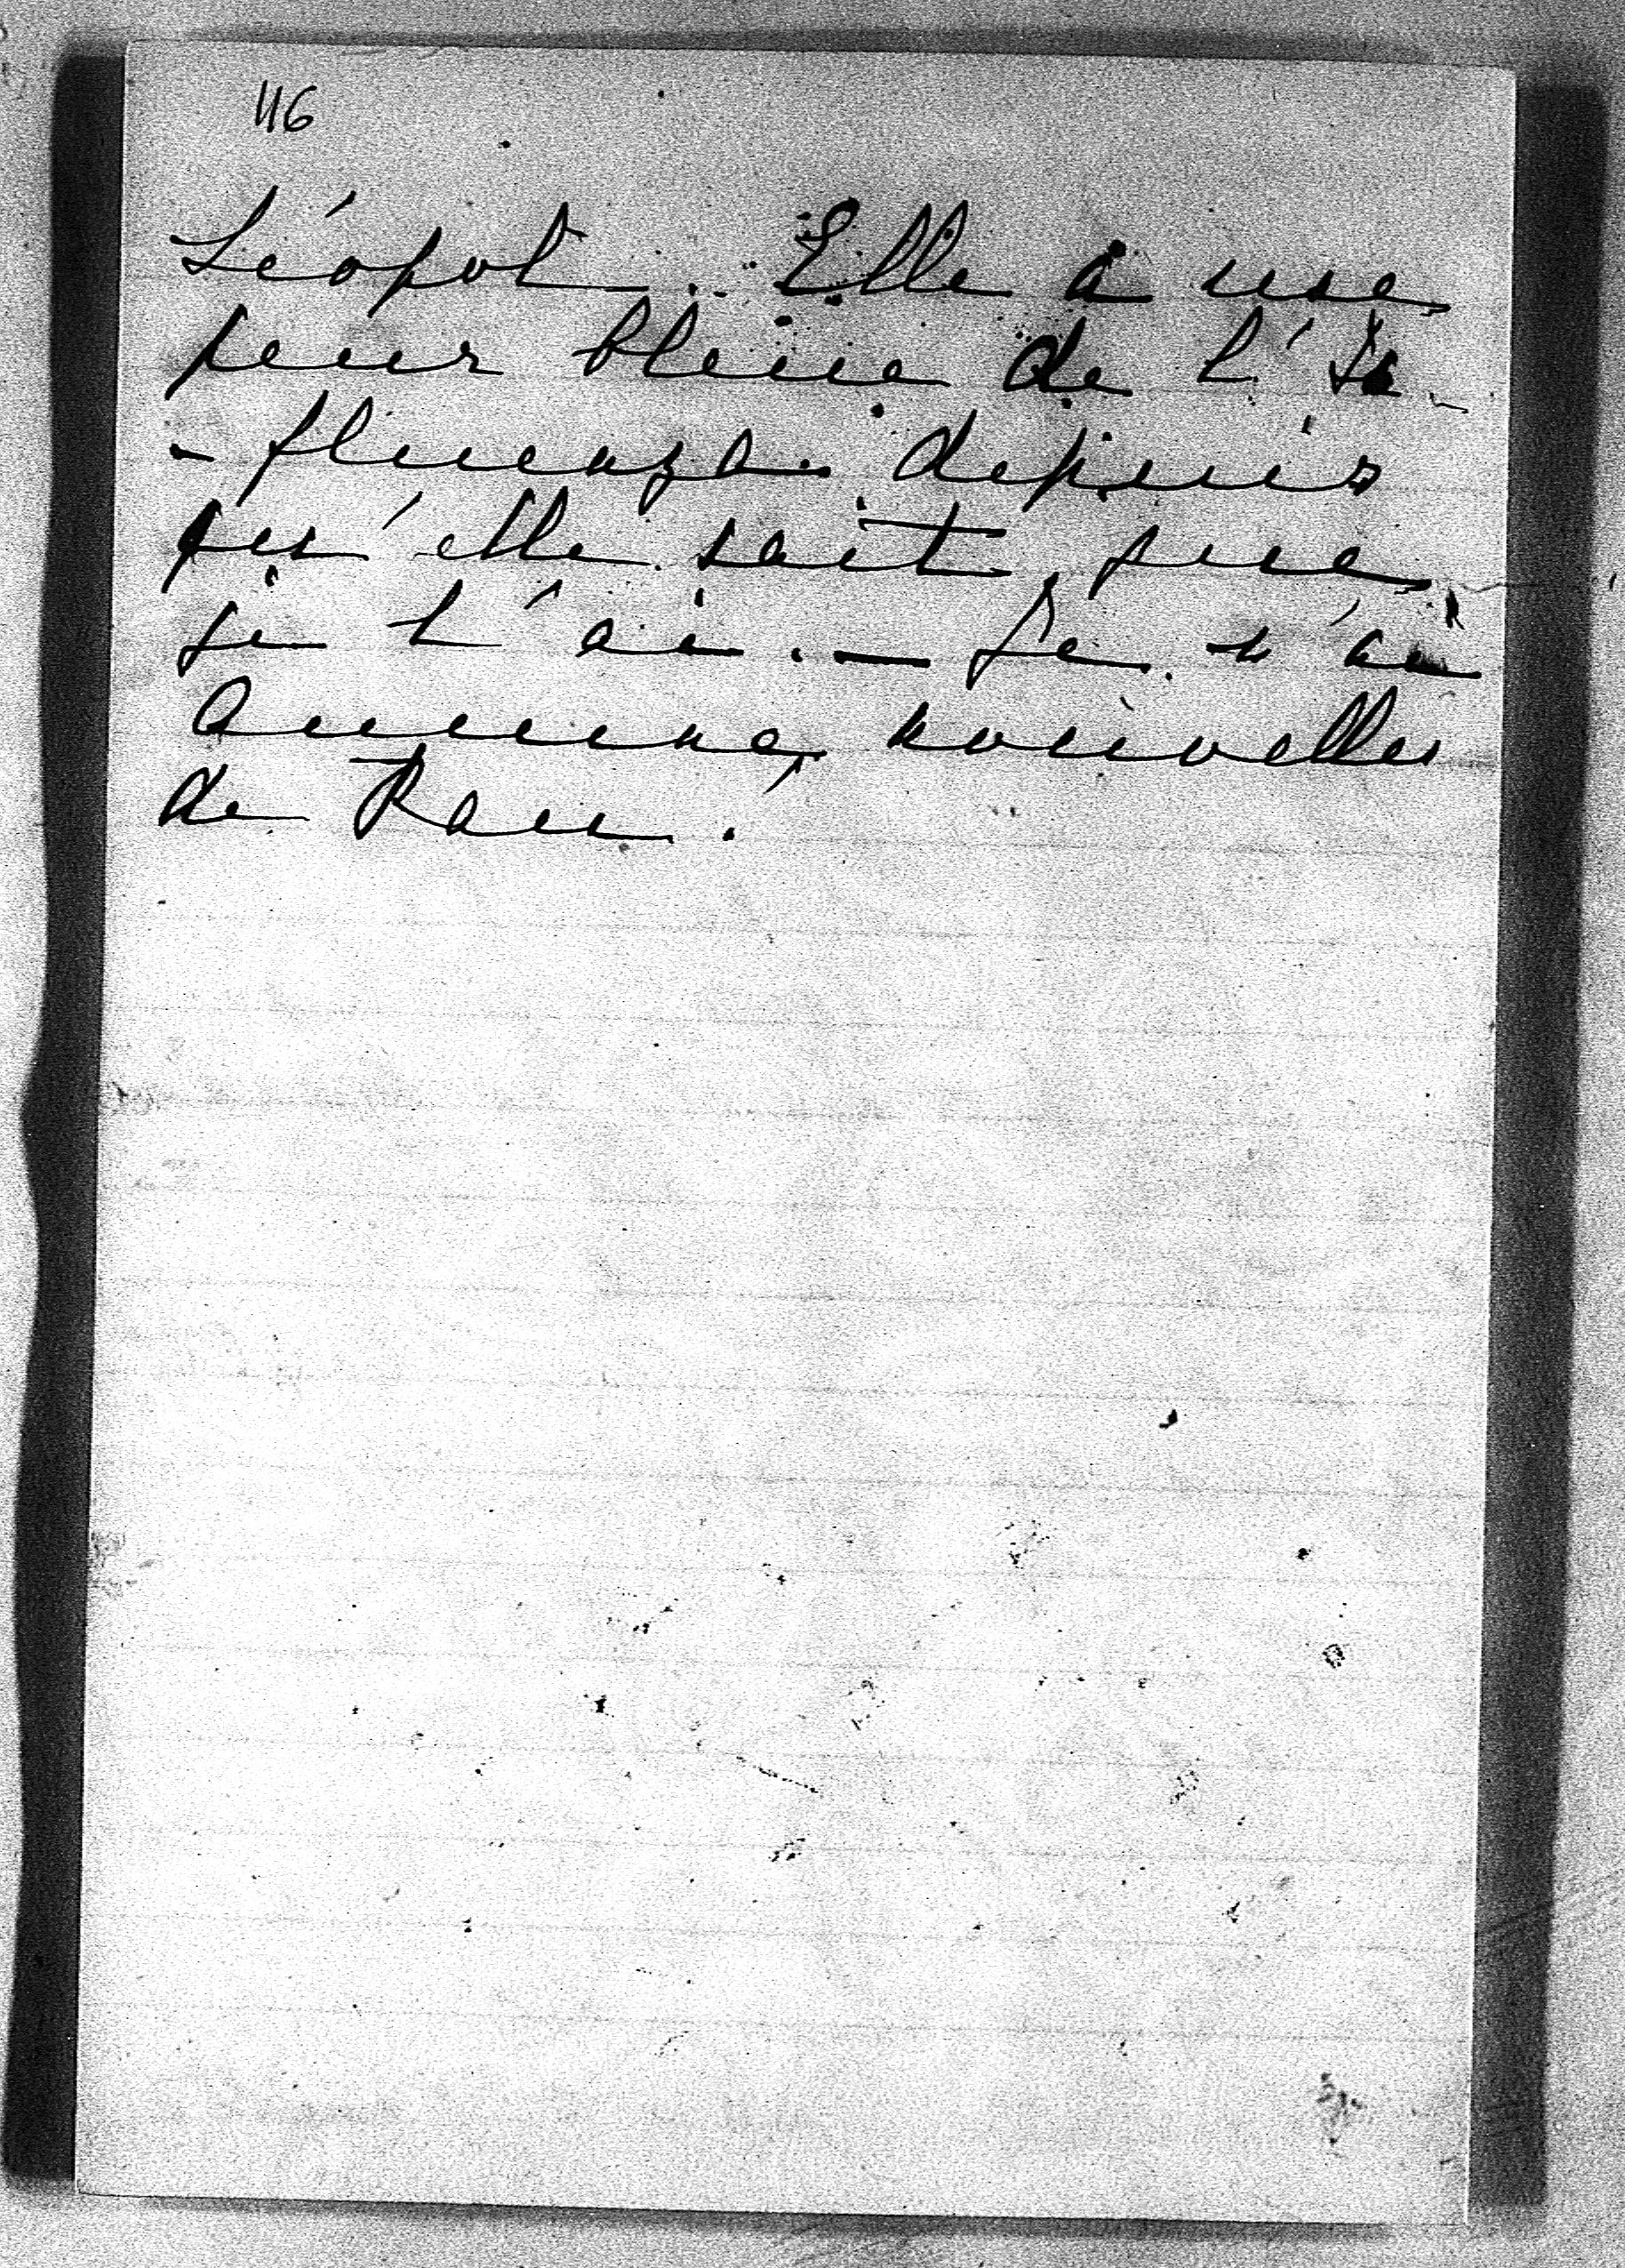 116
Léopol. Elle a une
peur bleue de l'In
-fluenza depuis
qu'elle sait que
je l'ai. — Je n'ai
aucune nouvelles
de Pau.